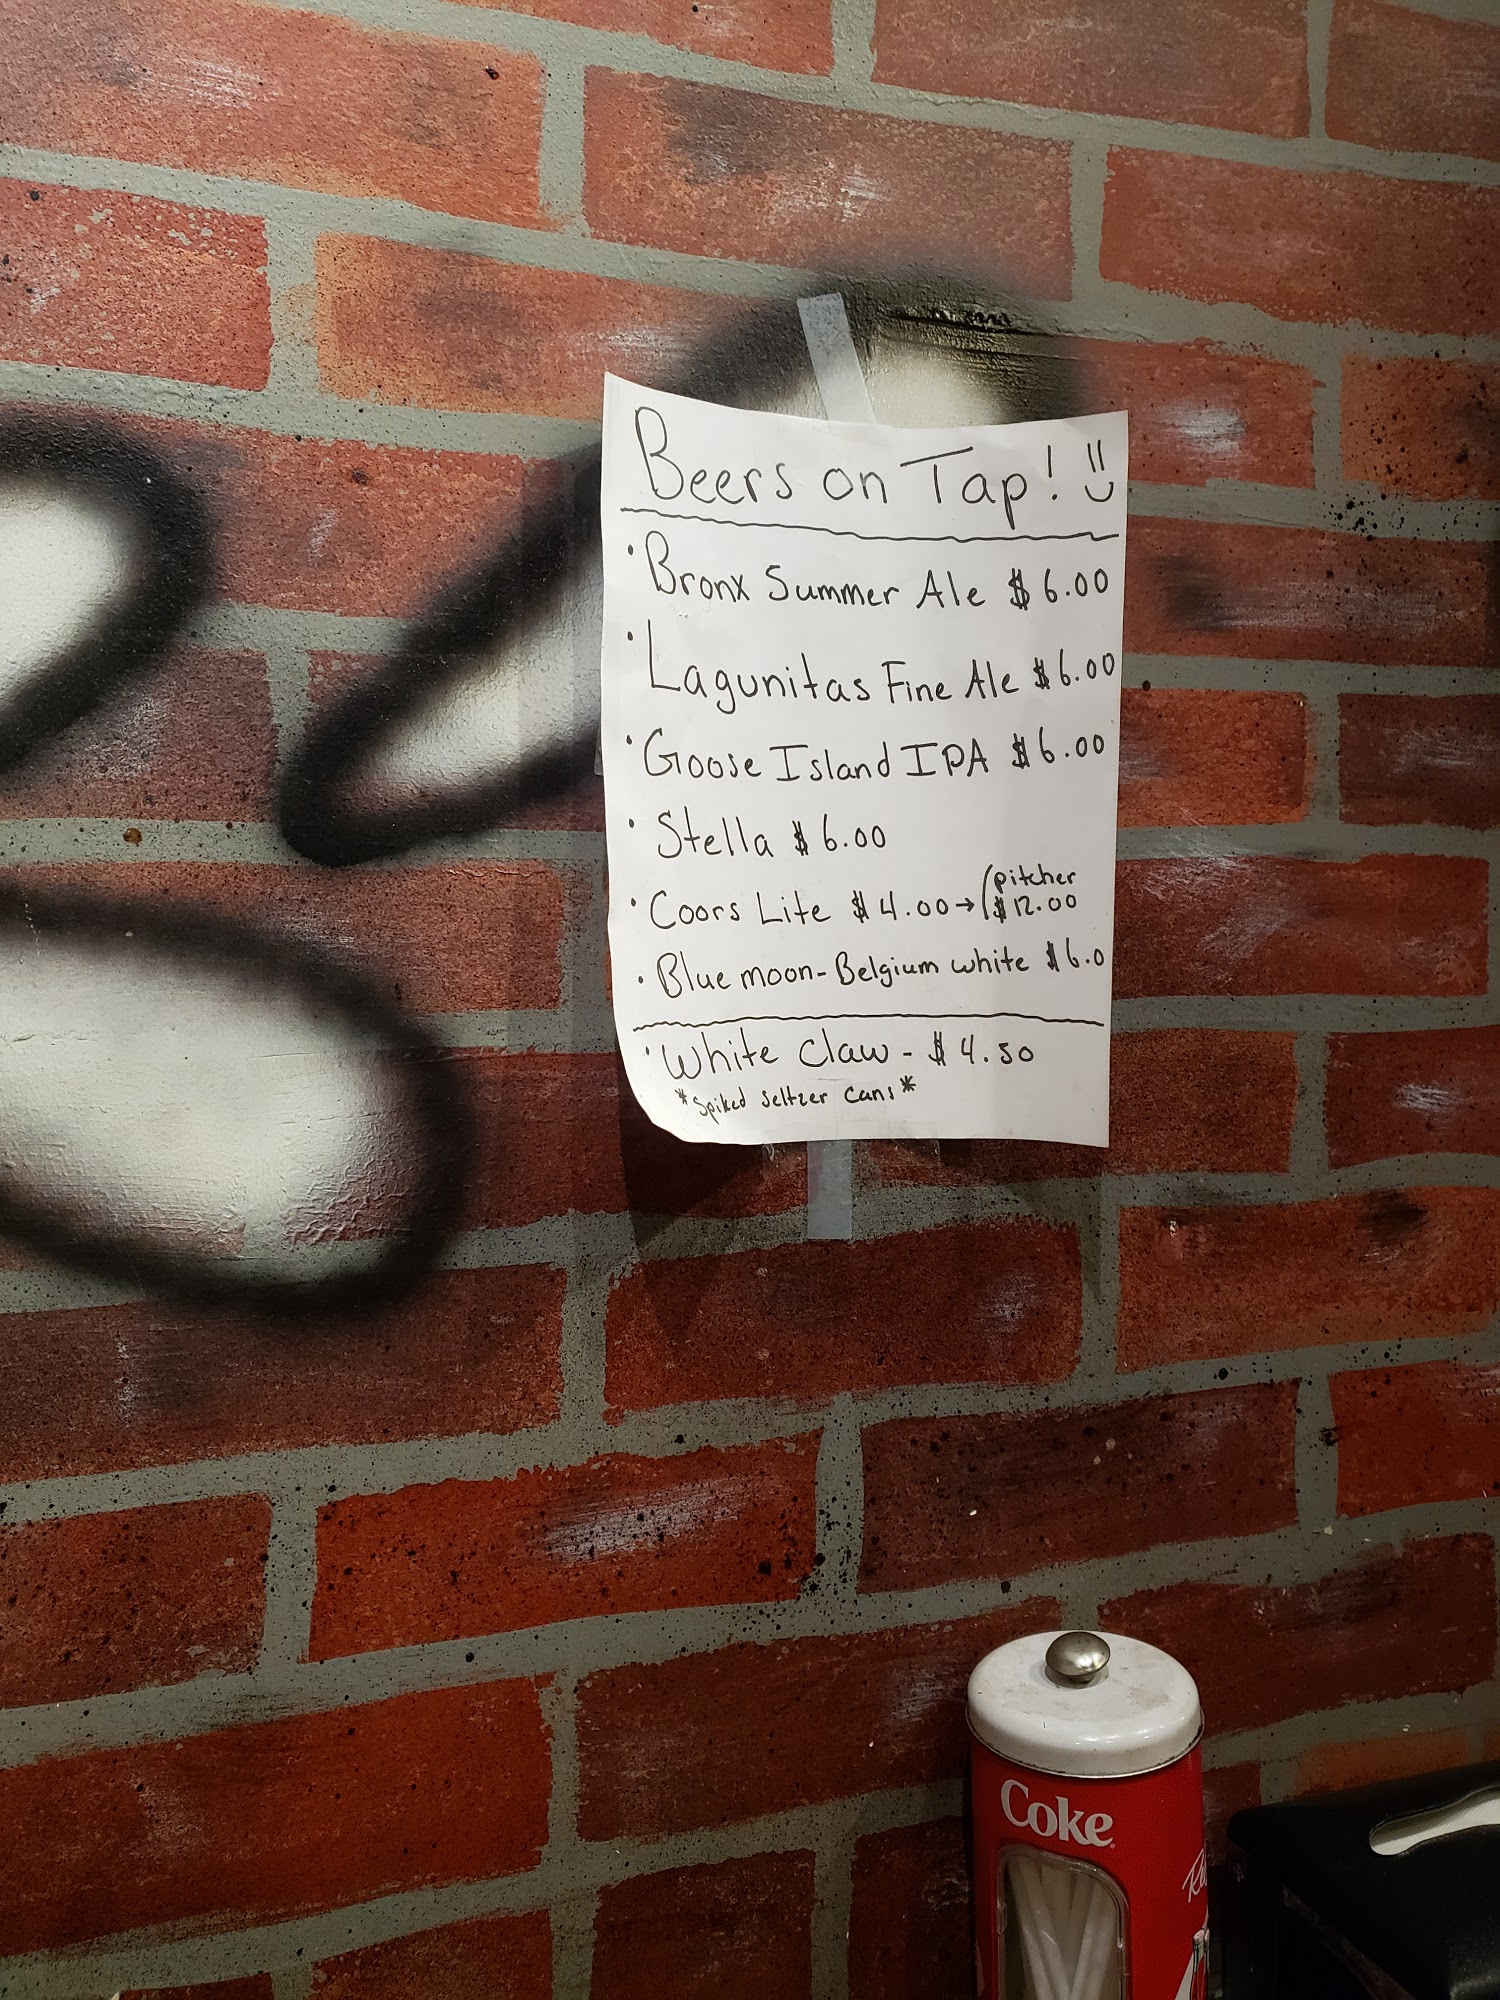 Beers on Tap!
• Bronx Summer Ale $6.00
• Lagunitas Fine Ale $6.00
• Goose Island IPA $6.00
• Stella $6.00
• Coors Lite $4.00 → (pitcher
$12.00
• Blue moon - Belgium white $6.0
• White Claw - $4.50
*Spiked Seltzer Cans*
Coke